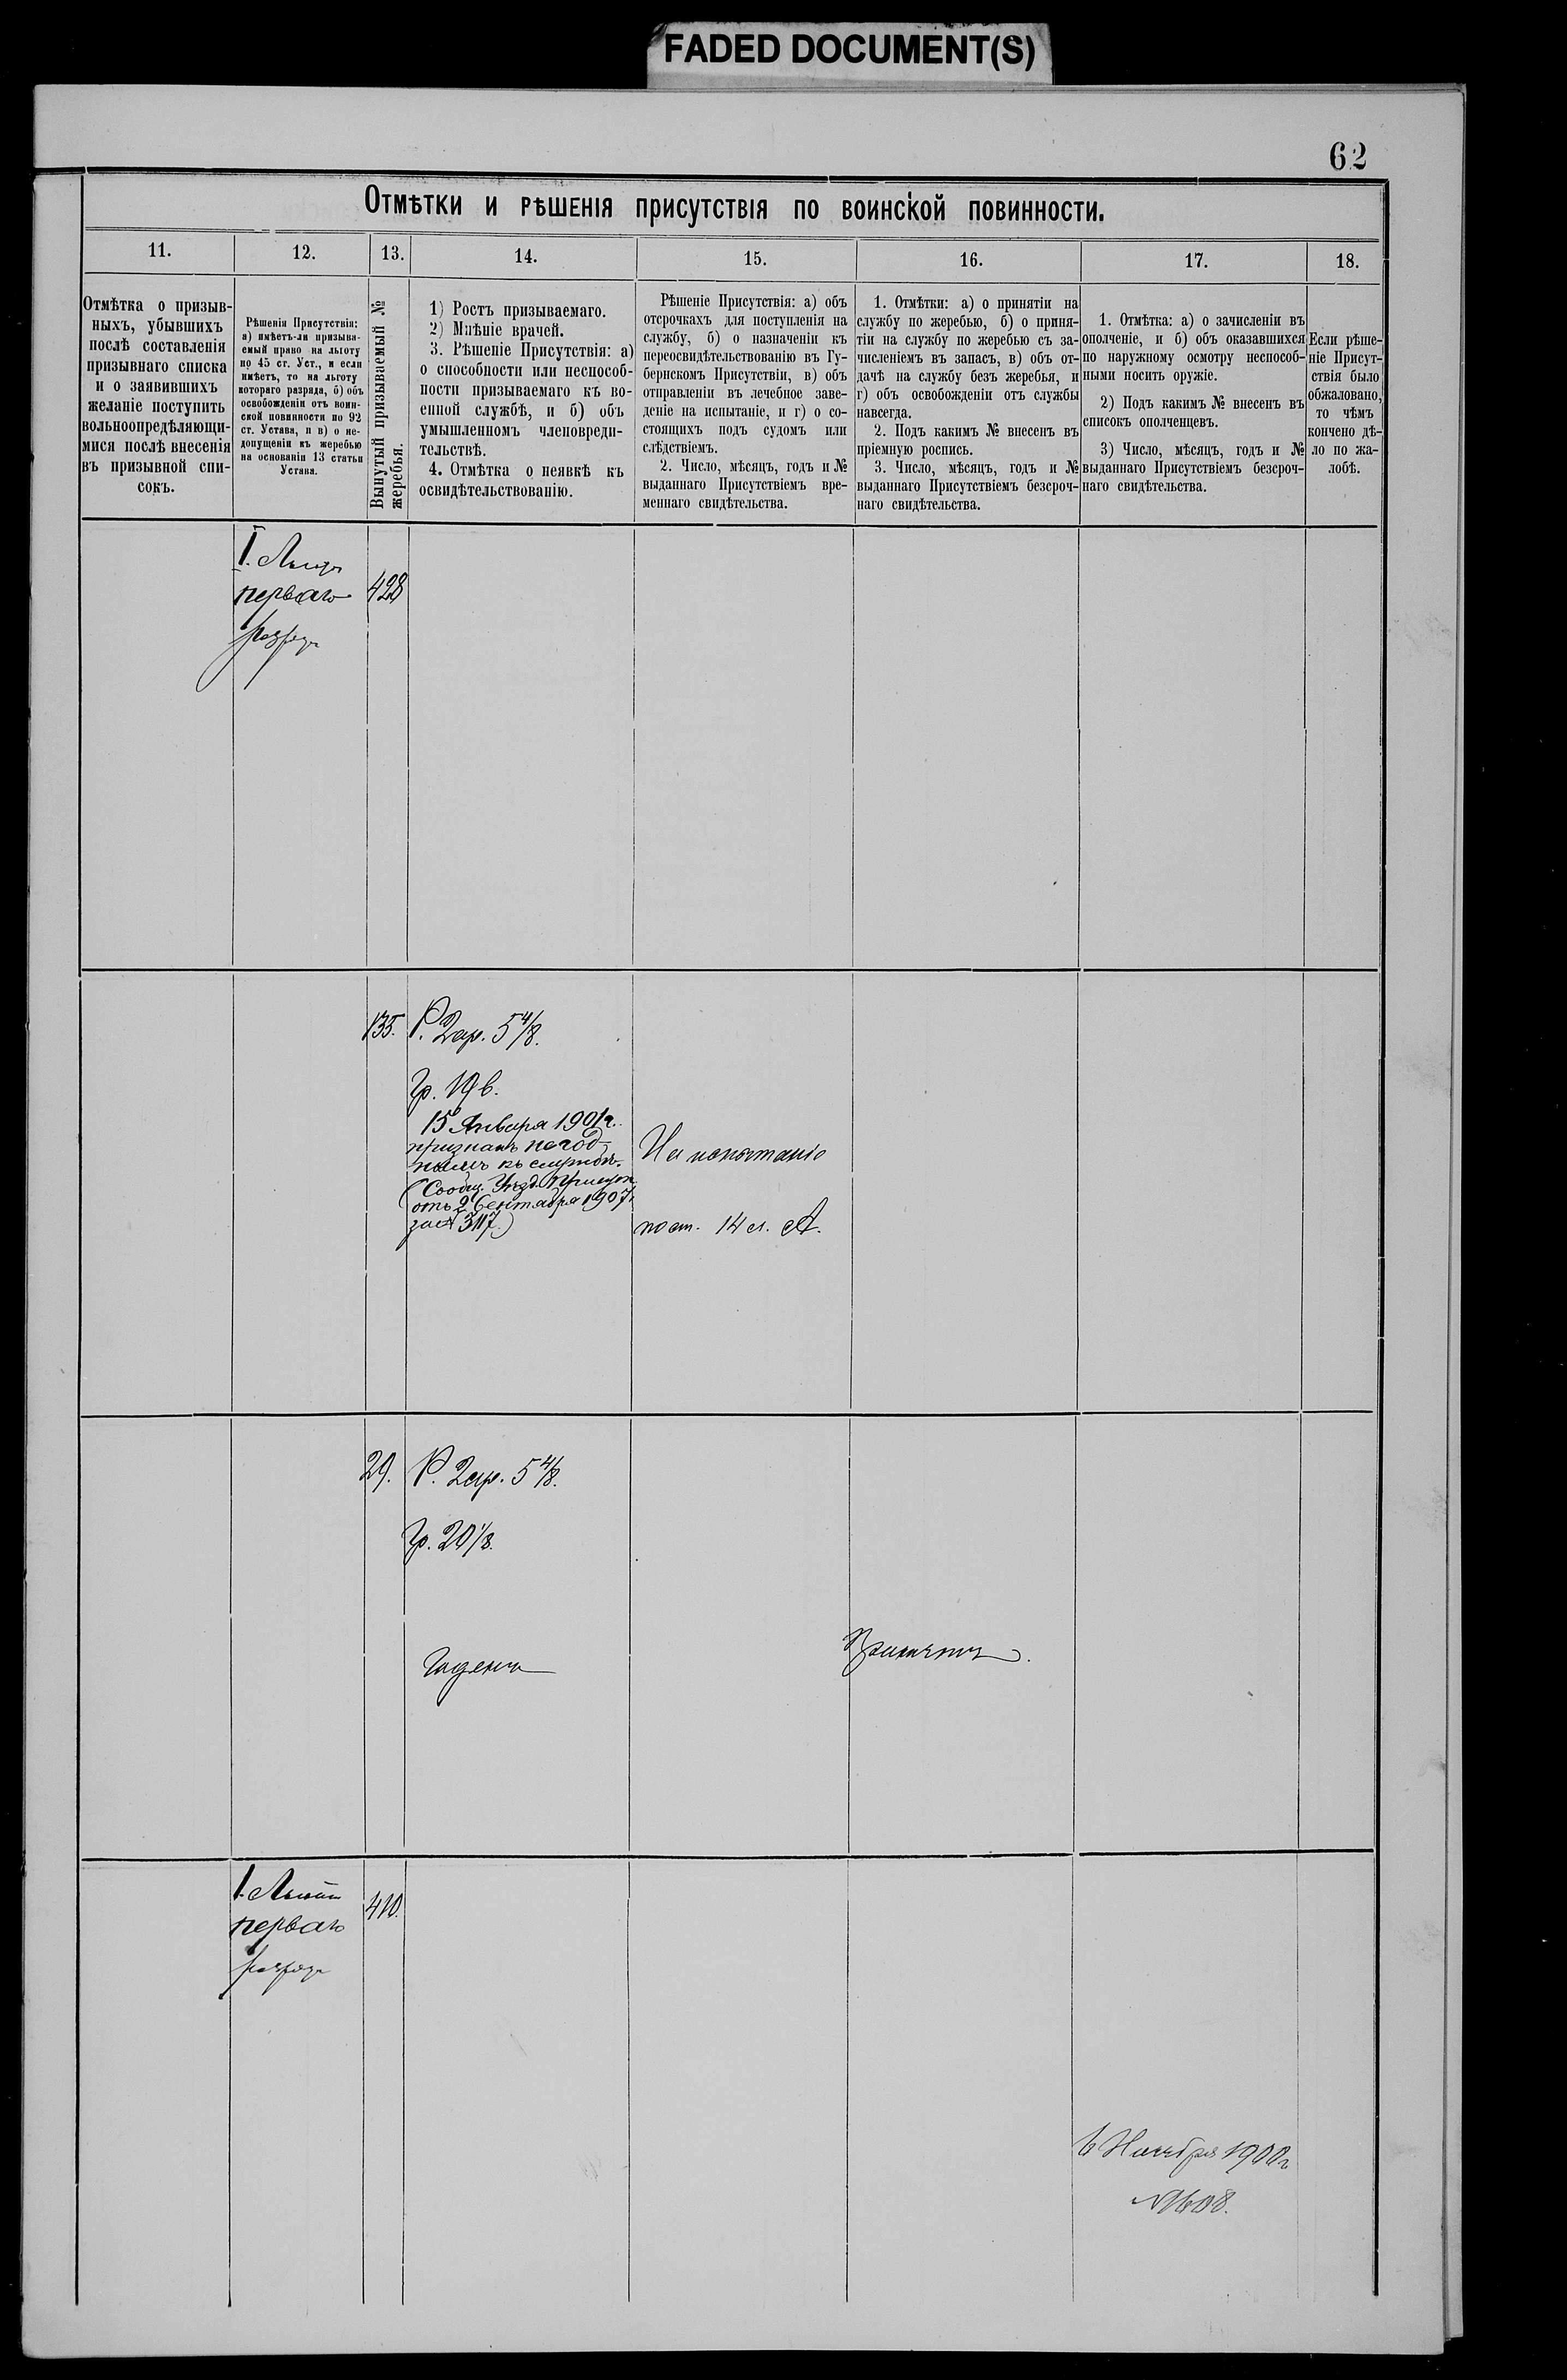 FADED DOCUMENT(S)
62
Отмѣтки и рѣшенія присутствія по воинской повинности.
11.
12.
13.
14.
15.
16.
17.
18.
Отмѣтка о призыв-
ныхъ, убывшихъ
послѣ составленія
призывнаго списка
и о заявившихъ
желаніе поступить
вольноопредѣляющи-
мися послѣ внесенія
въ призывной спи-
сокъ.
Рѣшенія Присутствія:
а) имѣетъ-ли призыва-
емый право на льготу
по 45 ст. Уст., и если
имѣетъ, то на льготу
котораго разряда, б) объ
освобожденіи отъ воин-
ской повинности по 92
ст. Устава, и в) о не-
допущеніи къ жеребью
на основаніи 13 статьи
Устава.
Вынутый призываемый №
жеребья.
1) Ростъ призываемаго.
2) Мнѣніе врачей.
3. Рѣшеніе Присутствія: а)
о способности или неспособ-
ности призываемаго къ во-
енной службѣ, и б) объ
умышленномъ членовреди-
тельствѣ.
4. Отмѣтка о неявкѣ къ
освидѣтельствованію.
Рѣшеніе Присутствія: а) объ
отсрочкахъ для поступленія на
службу, б) о назначеніи къ
переосвидѣтельствованію въ Гу-
бернскомъ Присутствіи, в) объ
отправленіи въ лечебное заве-
деніе на испытаніе, и г) о со-
стоящихъ подъ судомъ или
слѣдствіемъ.
2. Число, мѣсяцъ, годъ и №
выданнаго Присутствіемъ вре-
меннаго свидѣтельства.
1. Отмѣтки: а) о принятіи на
службу по жеребью, б) о приня-
тіи на службу по жеребью съ за-
численіемъ въ запасъ, в) объ от-
дачѣ на службу безъ жеребья, и
г) объ освобожденіи отъ службы
навсегда.
2. Подъ какимъ № внесенъ въ
пріемную роспись.
3. Число, мѣсяцъ, годъ и №
выданнаго Присутствіемъ безсроч-
наго свидѣтельства.
1. Отмѣтка: а) о зачисленіи въ
ополченіе, и б) объ оказавшихся
по наружному осмотру неспособ-
ными носить оружіе.
2) Подъ какимъ № внесенъ въ
списокъ ополченцевъ.
3) Число, мѣсяцъ, годъ и №
выданнаго Присутствіемъ безсроч-
наго свидѣтельства.
Если рѣше-
ніе Присут-
ствія было
обжаловано,
то чѣмъ
кончено дѣ-
ло по жа-
лобѣ.
I.
перваго
разряда
428
135.
Р. 2ар. 5 4/8.
Гр. 19 в.
15 Января 1901 г.
признанъ негод-
нымъ къ службѣ.
(Сообщ. Уѣзд. Присут.
отъ 2 Сентября 1907 г.
за № 3117.)
На испытаніе
по ст. 14 л. А.
29.
Р. 2ар. 5 4/8.
Гр. 20 1/8.
Годенъ
Принятъ.
I.
перваго
разряда
410.
6 Ноября 1900 г.
№ 1608.